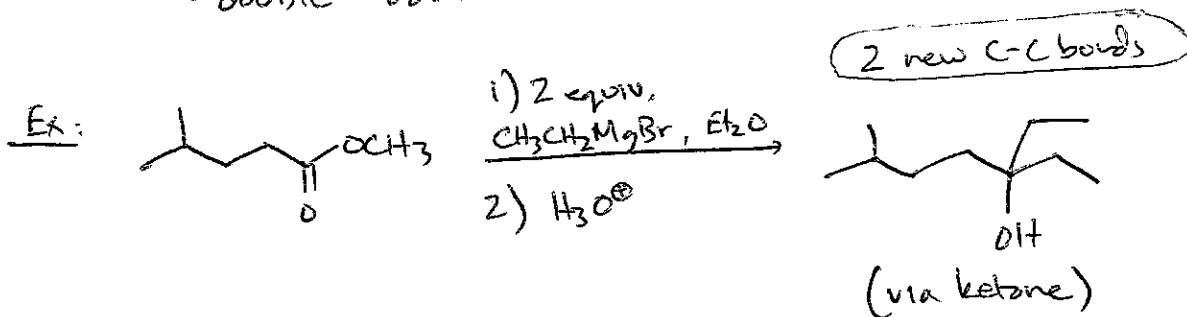 2 new C-C bonds
Ex:
OCH3
O
1) 2 equiv.
CH3CH2MgBr, Et2O
2) H3O⊕
OH
(via ketone)